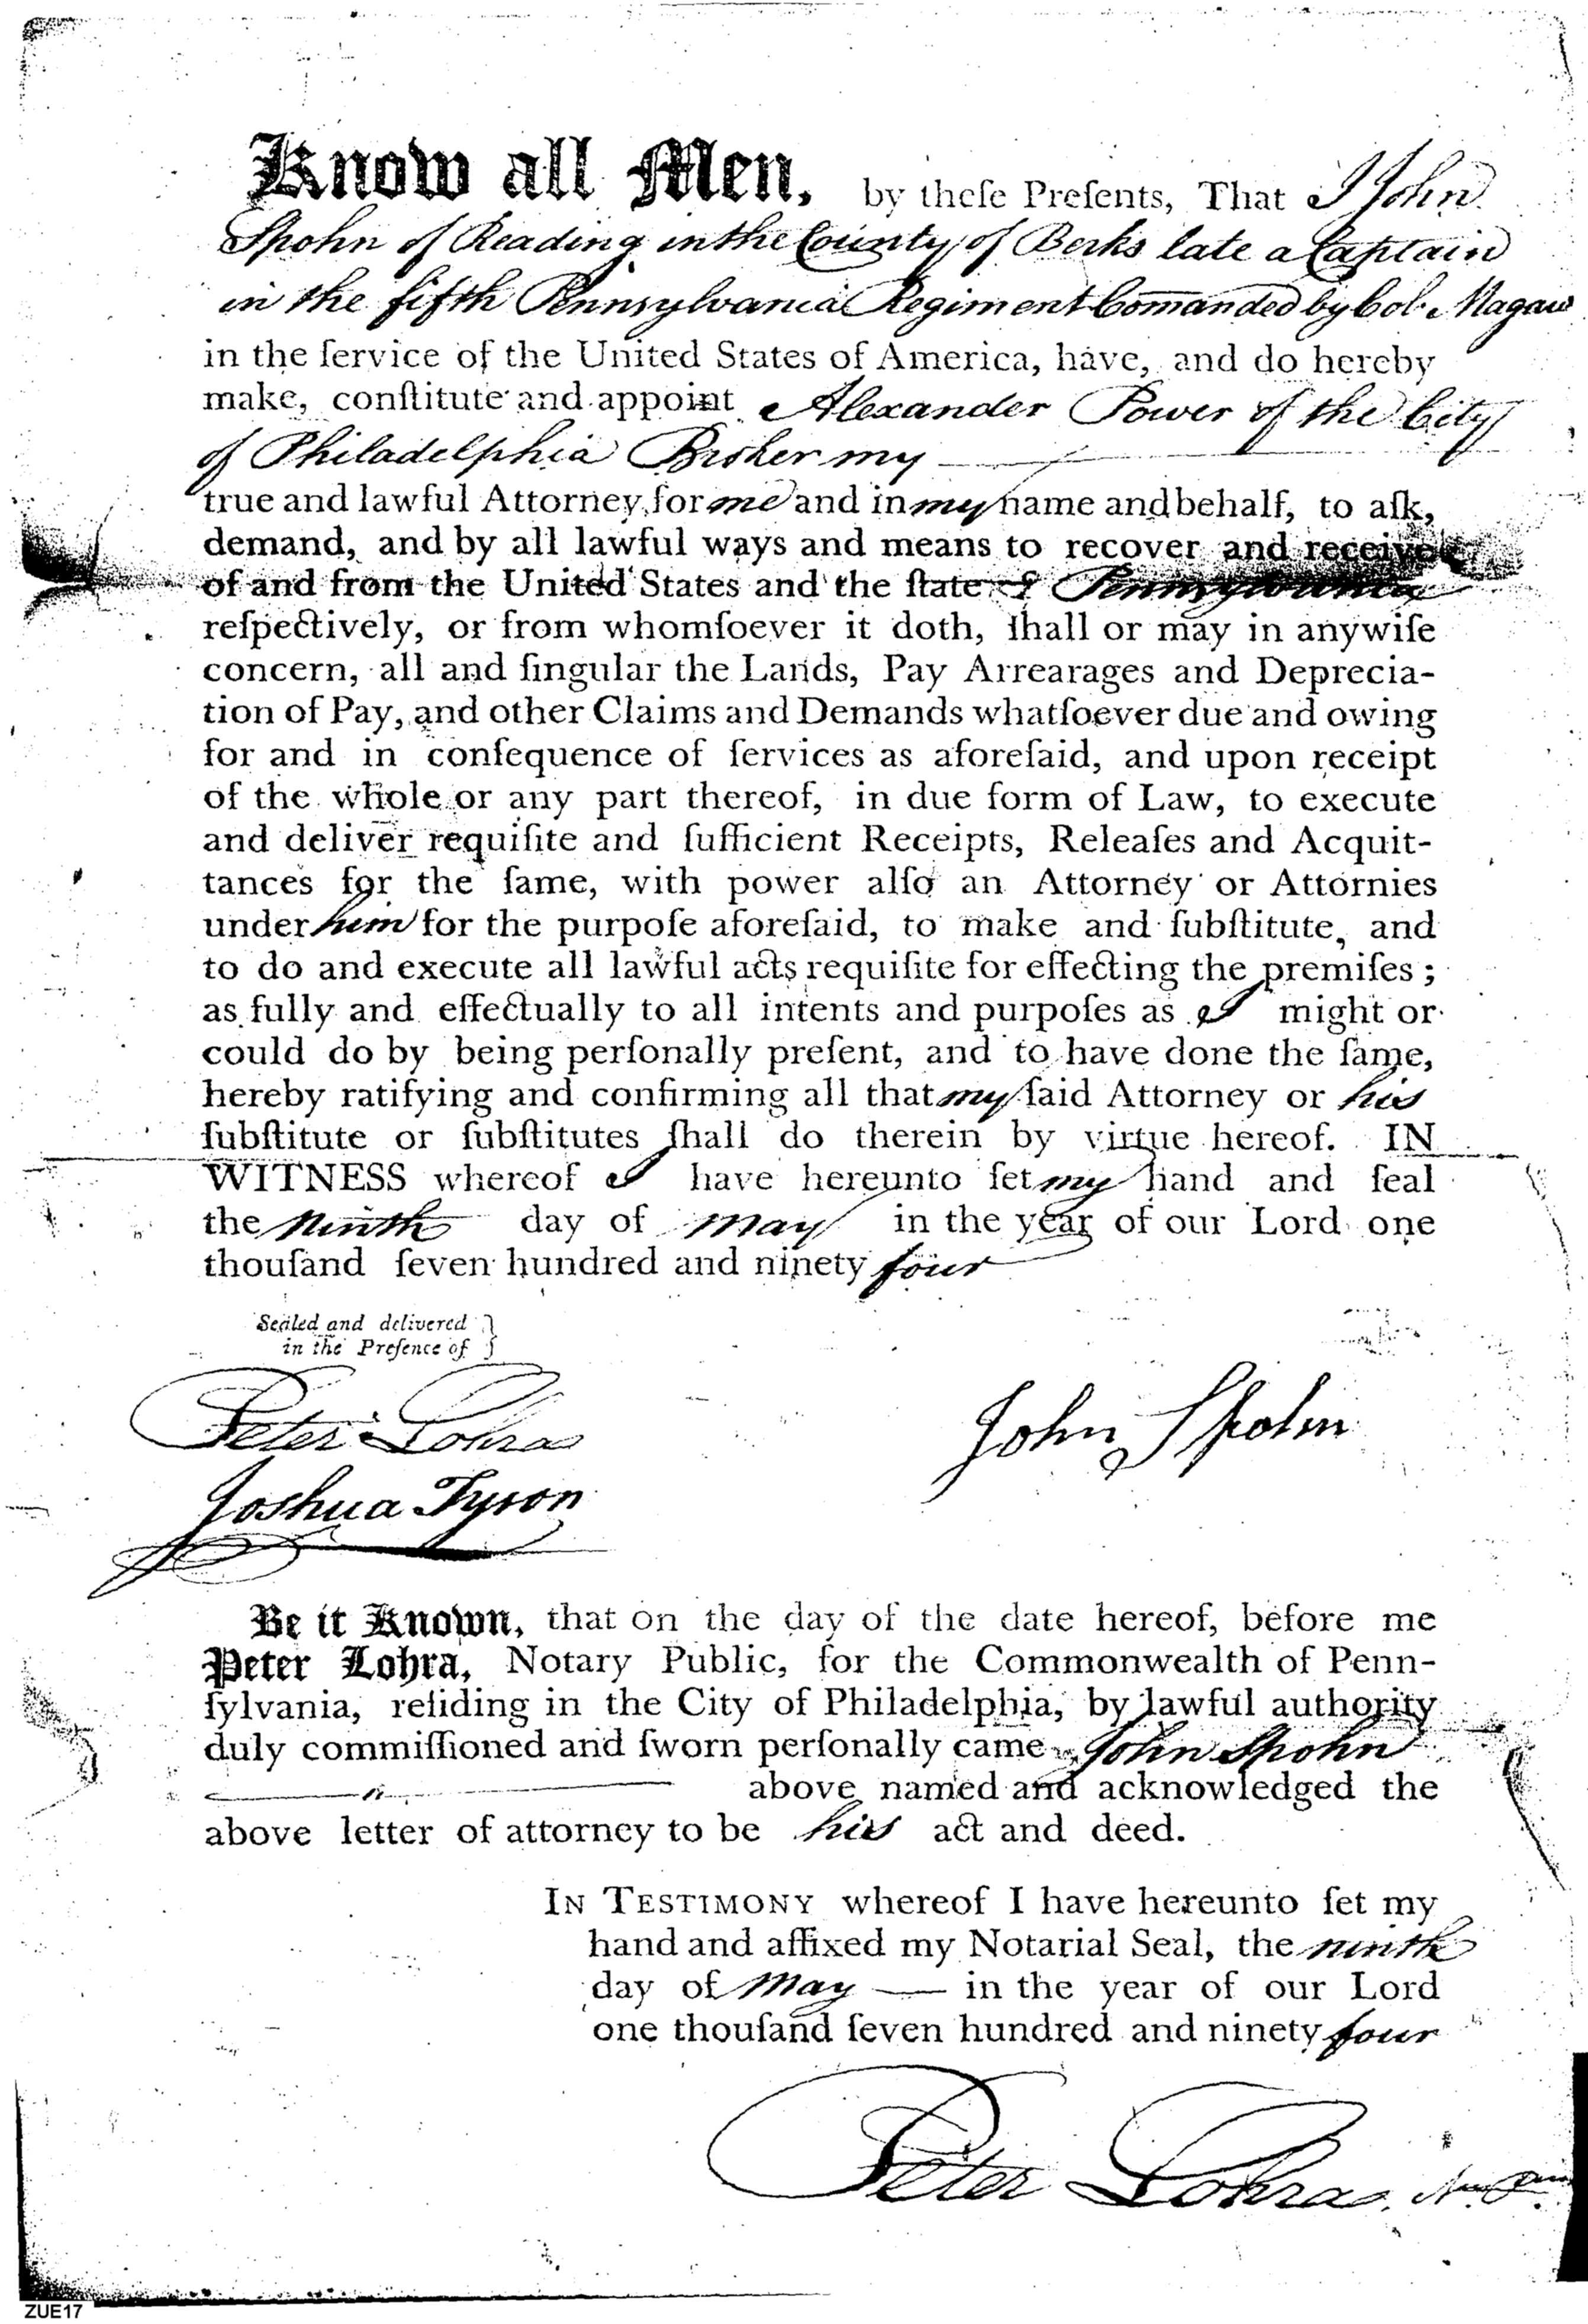 Know all Men, by theſe Preſents, That I John
Spohn of Reading in the County of Berks late a Captain
in the fifth Pennsylvania Regiment Comanded by Col. Magaw
in the ſervice of the United States of America, have, and do hereby
make, conſtitute and appoint Alexander Power of the City
of Philadelphia Broker my
true and lawful Attorney, for me and in my name and behalf, to aſk,
demand, and by all lawful ways and means to recover and receive
of and from the United States and the ſtate of Pennsylvania
reſpectively, or from whomſoever it doth, ſhall or may in anywiſe
concern, all and ſingular the Lands, Pay Arrearages and Deprecia-
tion of Pay, and other Claims and Demands whatſoever due and owing
for and in conſequence of ſervices as aforeſaid, and upon receipt
of the whole or any part thereof, in due form of Law, to execute
and deliver requiſite and ſufficient Receipts, Releaſes and Acquit-
tances for the ſame, with power alſo an Attorney or Attornies
under him for the purpoſe aforeſaid, to make and ſubſtitute, and
to do and execute all lawful acts requiſite for effecting the premiſes;
as fully and effectually to all intents and purpoſes as I might or
could do by being perſonally preſent, and to have done the ſame,
hereby ratifying and confirming all that my ſaid Attorney or his
ſubſtitute or ſubſtitutes ſhall do therein by virtue hereof. IN
WITNESS whereof I have hereunto ſet my hand and ſeal
the ninth day of May in the year of our Lord one
thouſand ſeven hundred and ninety four
Sealed and delivered }
in the Preſence of }
Peter Lohra
John Spohn
Joshua Tyson
Be it Known, that on the day of the date hereof, before me
Peter Lohra, Notary Public, for the Commonwealth of Penn-
ſylvania, reſiding in the City of Philadelphia, by lawful authority
duly commiſſioned and ſworn perſonally came John Spohn
above named and acknowledged the
above letter of attorney to be his act and deed.
IN TESTIMONY whereof I have hereunto ſet my
hand and affixed my Notarial Seal, the ninth
day of May — in the year of our Lord
one thouſand ſeven hundred and ninety four
Peter Lohra,
ZUE17